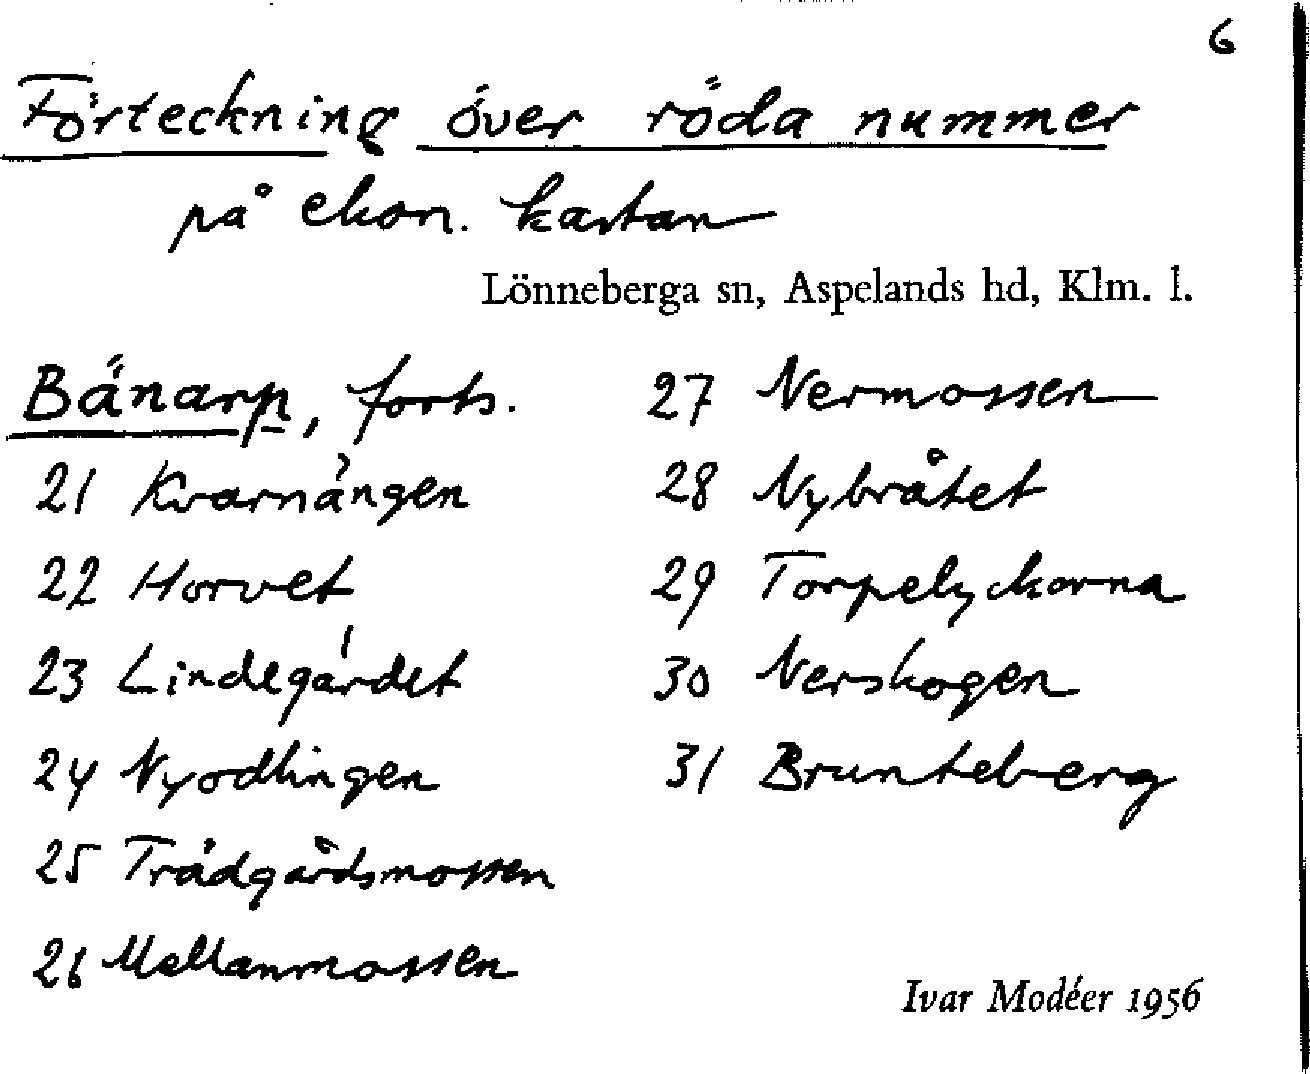 6
Förteckning över röda nummer
på ekon. kartan
Lönneberga sn, Aspelands hd, Klm. l.
Bänarp, forts.
21 Kvarnängen
22 Horvet
23 Lindegärdet
24 Nyodlingen
25 Trädgårdsmossen
26 Mellanmossen
27 Nermossen
28 Nybråtet
29 Torpelyckorna
30 Nerskogen
31 Brunteberg
Ivar Modéer 1956